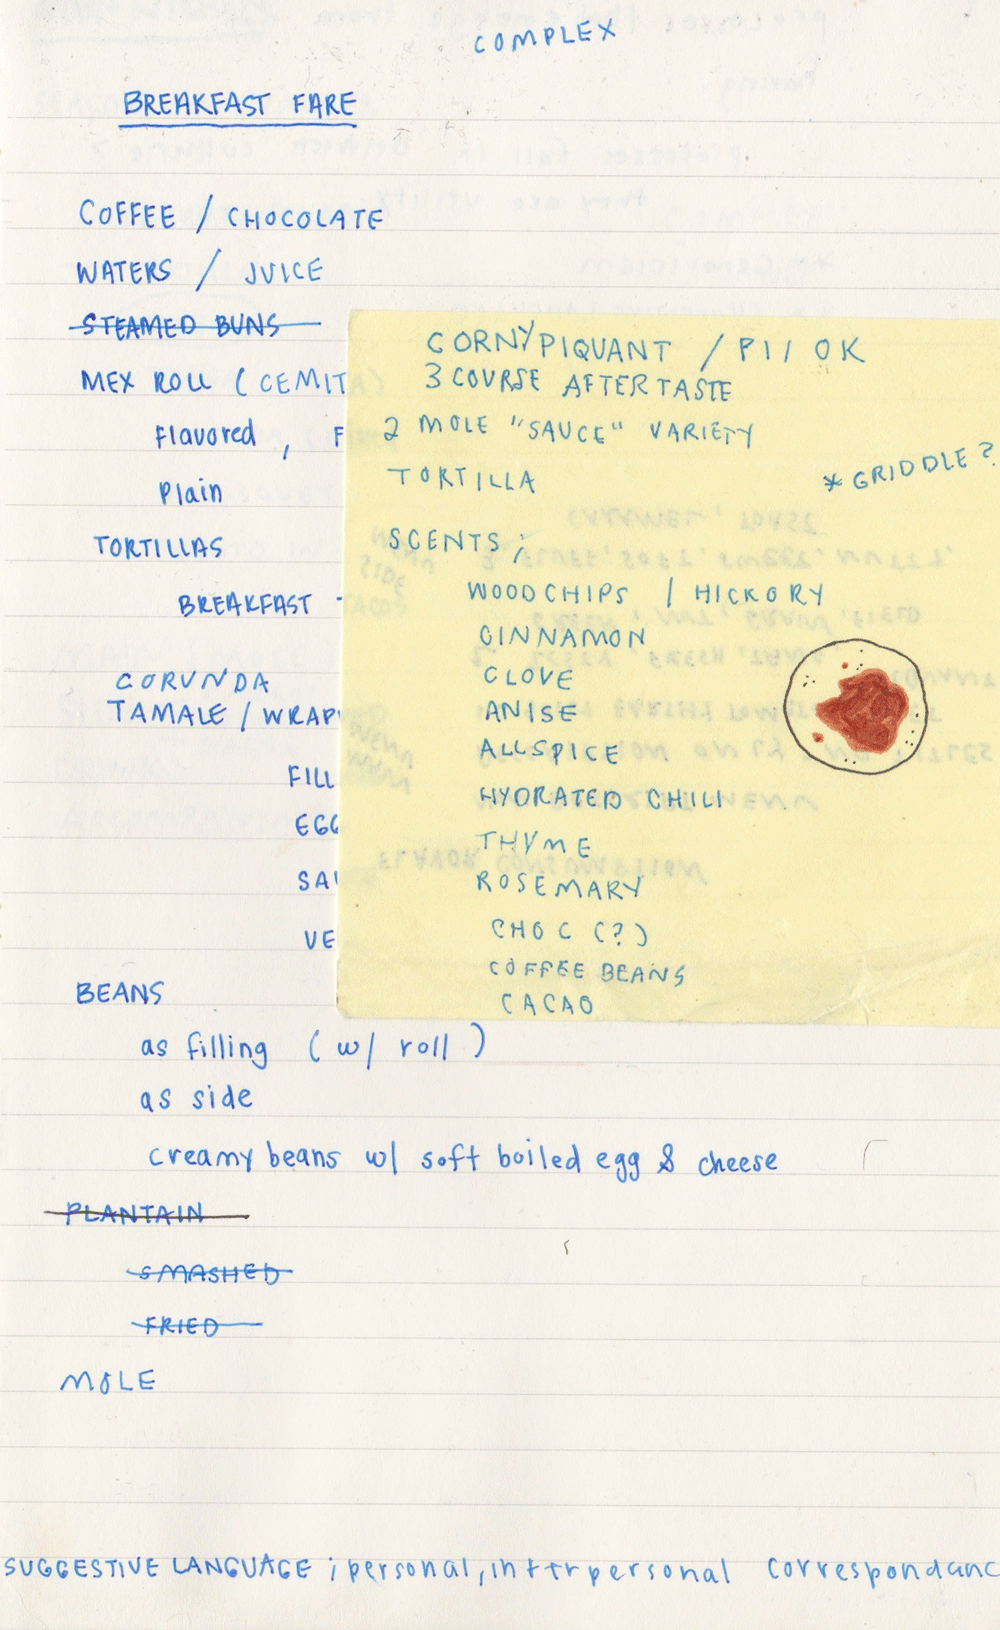 COMPLEX
BREAKFAST FARE
COFFEE / CHOCOLATE
WATERS / JUICE
STEAMED BUNS
MEX ROLL (CEMITA
flavored, F
Plain
TORTILLAS
BREAKFAST -
CORUNDA
TAMALE / WRAP
FILL
EGG
SA
VE
BEANS
as filling (w/ roll)
as side
creamy beans w/ soft boiled egg & cheese
PLANTAIN
SMASHED
FRIED
MOLE
SUGGESTIVE LANGUAGE ; personal, interpersonal correspondanc
CORNY PIQUANT / P11 OK
3 COURSE AFTERTASTE
2 MOLE "SAUCE" VARIETY
TORTILLA
* GRIDDLE?
SCENTS;
WOODCHIPS / HICKORY
CINNAMON
CLOVE
ANISE
ALLSPICE
HYDRATED CHILI
THYME
ROSEMARY
CHOC (?)
COFFEE BEANS
CACAO